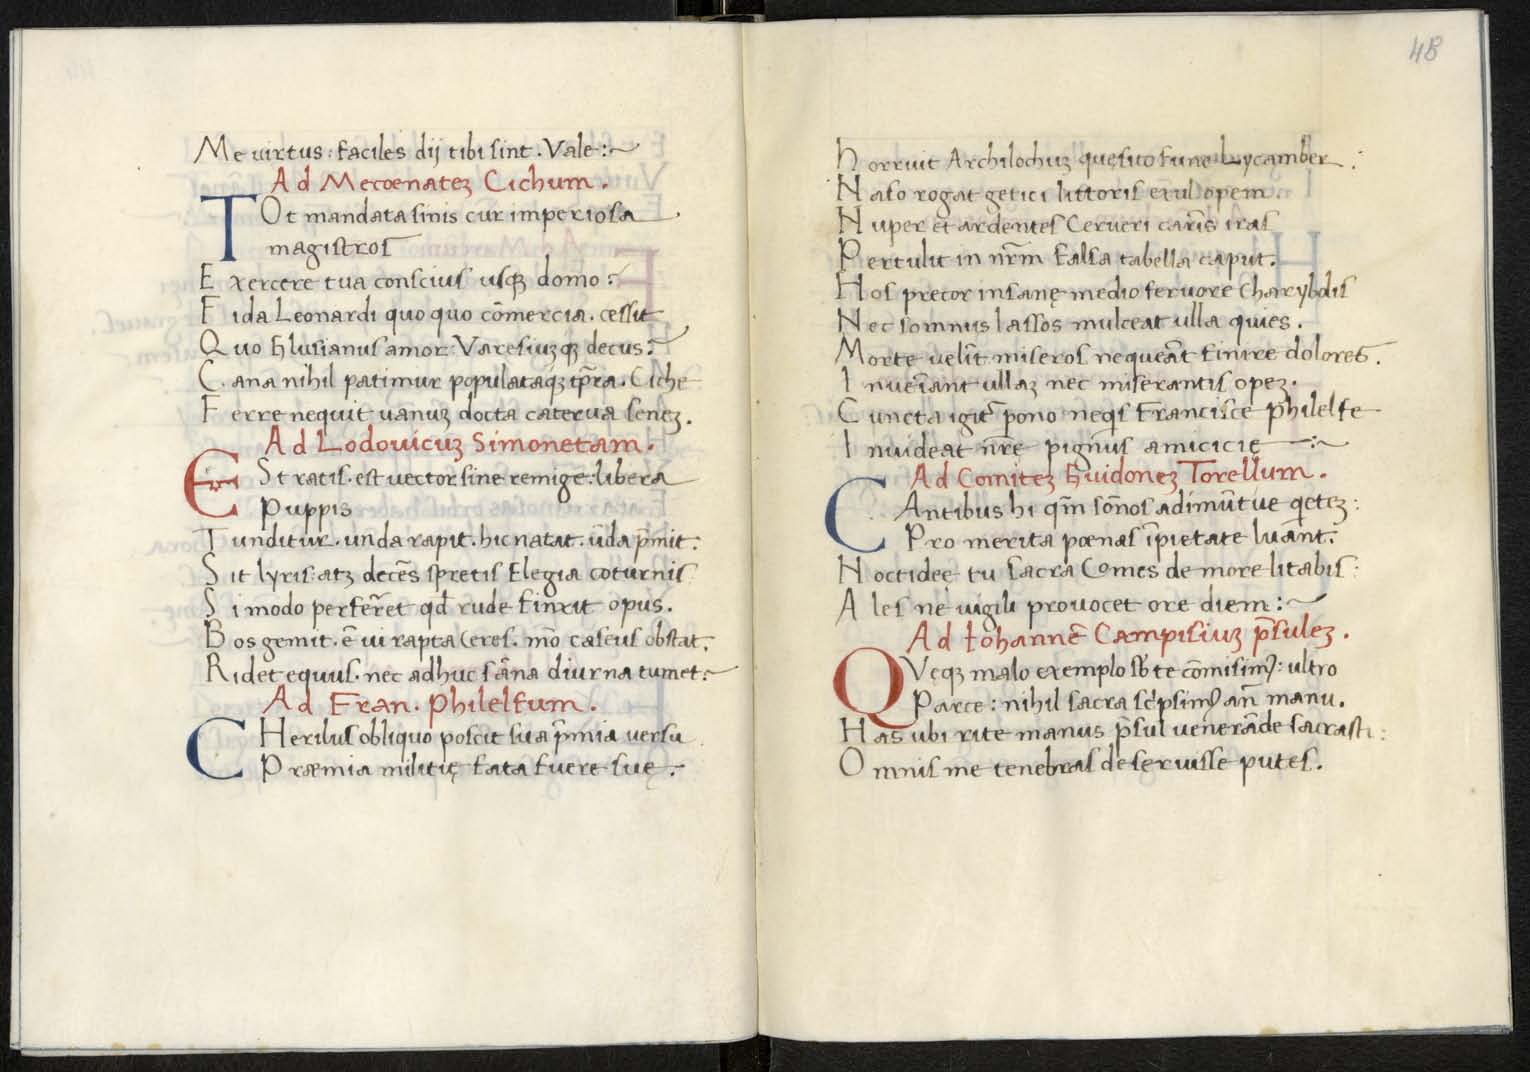 Me uirtus: faciles dij tibi sint. Vale:~
Ad Mecoenatez Cichum.
TOt mandata sinis cur imperiosa
magistros
Exercere tua conscius usqz domo:
Fida Leonardi quo quo cōmercia. cessit
Quo Hlusianus amor: Varesiuzqz decus:
Cana nihil patimur populataqz tp̄ra. Ciche
Ferre nequit uanuz docta caterua senez.
Ad Lodouicuz Simonetam.
ESt ratis. est uector sine remige: libera
Puppis
Tunditur. unda rapit. hic natat. ūda p̄mit:
Sit lyris: atz decēs spretis Elegia coturnis
Si modo perferret qd rude finxit opus.
Bos gemit. ē ui rapta Ceres. mō caseus obstat.
Ridet equus. nec adhuc sāna diurna tumet:~
Ad Fran. Philelfum.
CHerilus obliquo poscit sua p̄mia uersu
Præmia militię fata fuere suę.
48
Horruit Archilochuz quęsito fune Lycamber:
Naso rogat getici littoris exul opem.
Nuper et ardentes Cerueri carīs iras
Pertulit in nr̄m falsa tabella caput.
Hos precor insanę medio feruore Charybdis
Nec somnus lassos mulceat ulla quies.
Morte velīt miseros nequeāt finire dolores.
Inueīant ullaz nec miserantis opez.
Cuncta igit̄ pono neqs Francisce philelfe
Inuideat nr̄ę pignus amicicię:~
Ad Comitez Guidonez Torellum.
CAntibus hi qm̄ sōnos adimūt ue qetez:
Pro merita pœnas īpietate luānt.
Noctideę tu sacra Comes de more litabis:
Ales ne uigili prouocet ore diem:~
Ad Iohannē Campisiuz p̄sulez.
QVeqz malo exemplo sb te cōmisimꝰ: ultro
Parce: nihil sacra sc̄psimꝰ an̄ manu.
Has ubi rite manus p̄sul uenerāde sacrasti:
Omnis me tenebras deseruisse putes.